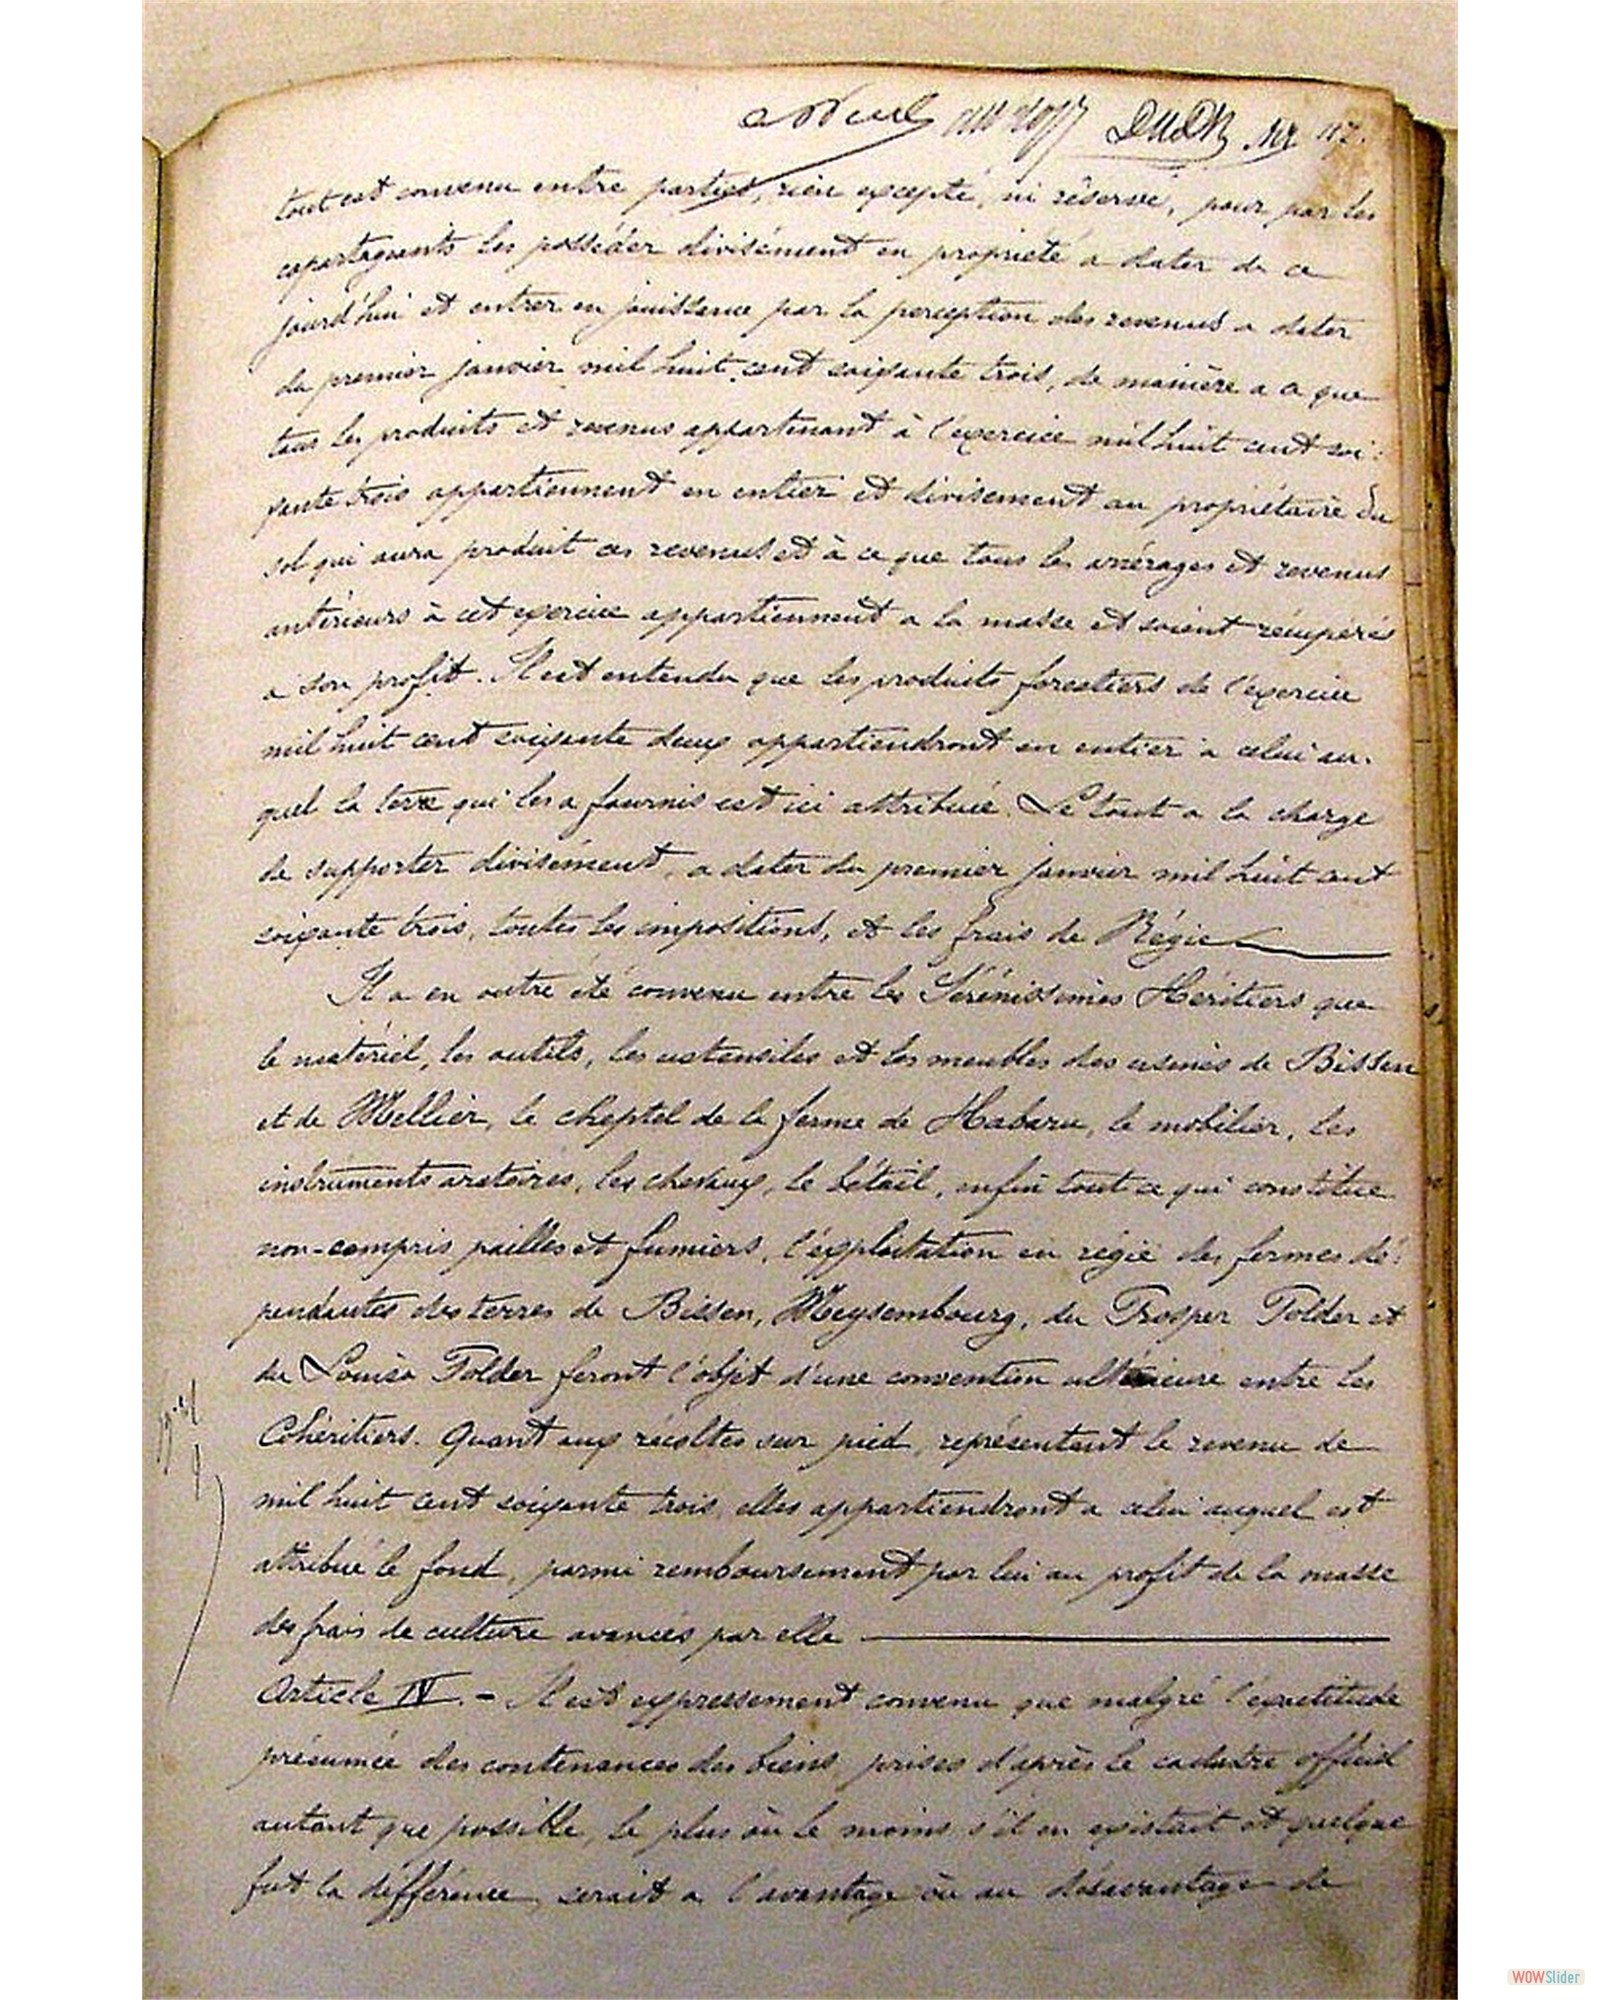 117.
tout est convenu entre parties, rien excepté, ni réservé, pour par les
copartageants les posséder divisément en propriété a dater de ce
jourd'hui et entrer en jouissance par la perception des revenus a dater
du premier janvier mil huit cent soixante trois, de manière a ce que
tous les produits et revenus appartenant à l'exercice mil huit cent soi-
xante trois appartiennent en entier et divisement au propriétaire du
sol qui aura produit ces revenus et à ce que tous les arrérages et revenus
antérieurs à cet exercice appartiennent a la masse et soient récupérés
a son profit. Il est entendu que les produits forestiers de l'exercice
mil huit cent soixante deux appartiendront en entier a celui au-
quel la terre qui les a fournis est ici attribuée. Le tout a la charge
de supporter divisément, a dater du premier janvier mil huit cent
soixante trois, toutes les impositions, et les frais de Régie
Il a en outre été convenu entre les Sérénissimes Héritiers que
le matériel, les outils, les ustensiles et les meubles des usines de Bissen
et de Mellier, le cheptel de la ferme de Habaru, le mobilier, les
instruments aratoires, les chevaux, le bétail, enfin tout ce qui constitue
non-compris pailles et fumiers, l'exploitation en régie des fermes dé-
pendantes des terres de Bissen, Meysembourg, du Prosper Polder et
du Louisa Polder feront l'objet d'une convention ultérieure entre les
Cohéritiers. Quant aux récoltes sur pied, représentant le revenu de
mil huit cent soixante trois, elles appartiendront a celui auquel est
attribué le fond, parmi remboursement par lui au profit de la masse
des frais de culture avancés par elle
Article IV. - Il est expressement convenu que malgré l'exactitude
présumée des contenances des biens prises d'après le cadastre officiel
autant que possible, le plus où le moins s'il en existait et quelque
fut la différence, serait a l'avantage où au désavantage de
WOWSlider